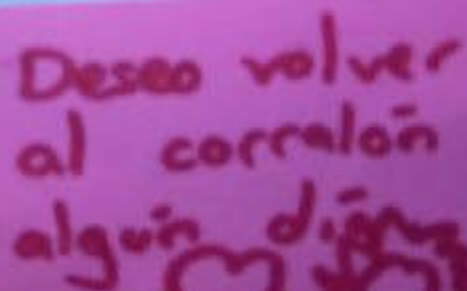 Deseo volver
al corralón
algún día